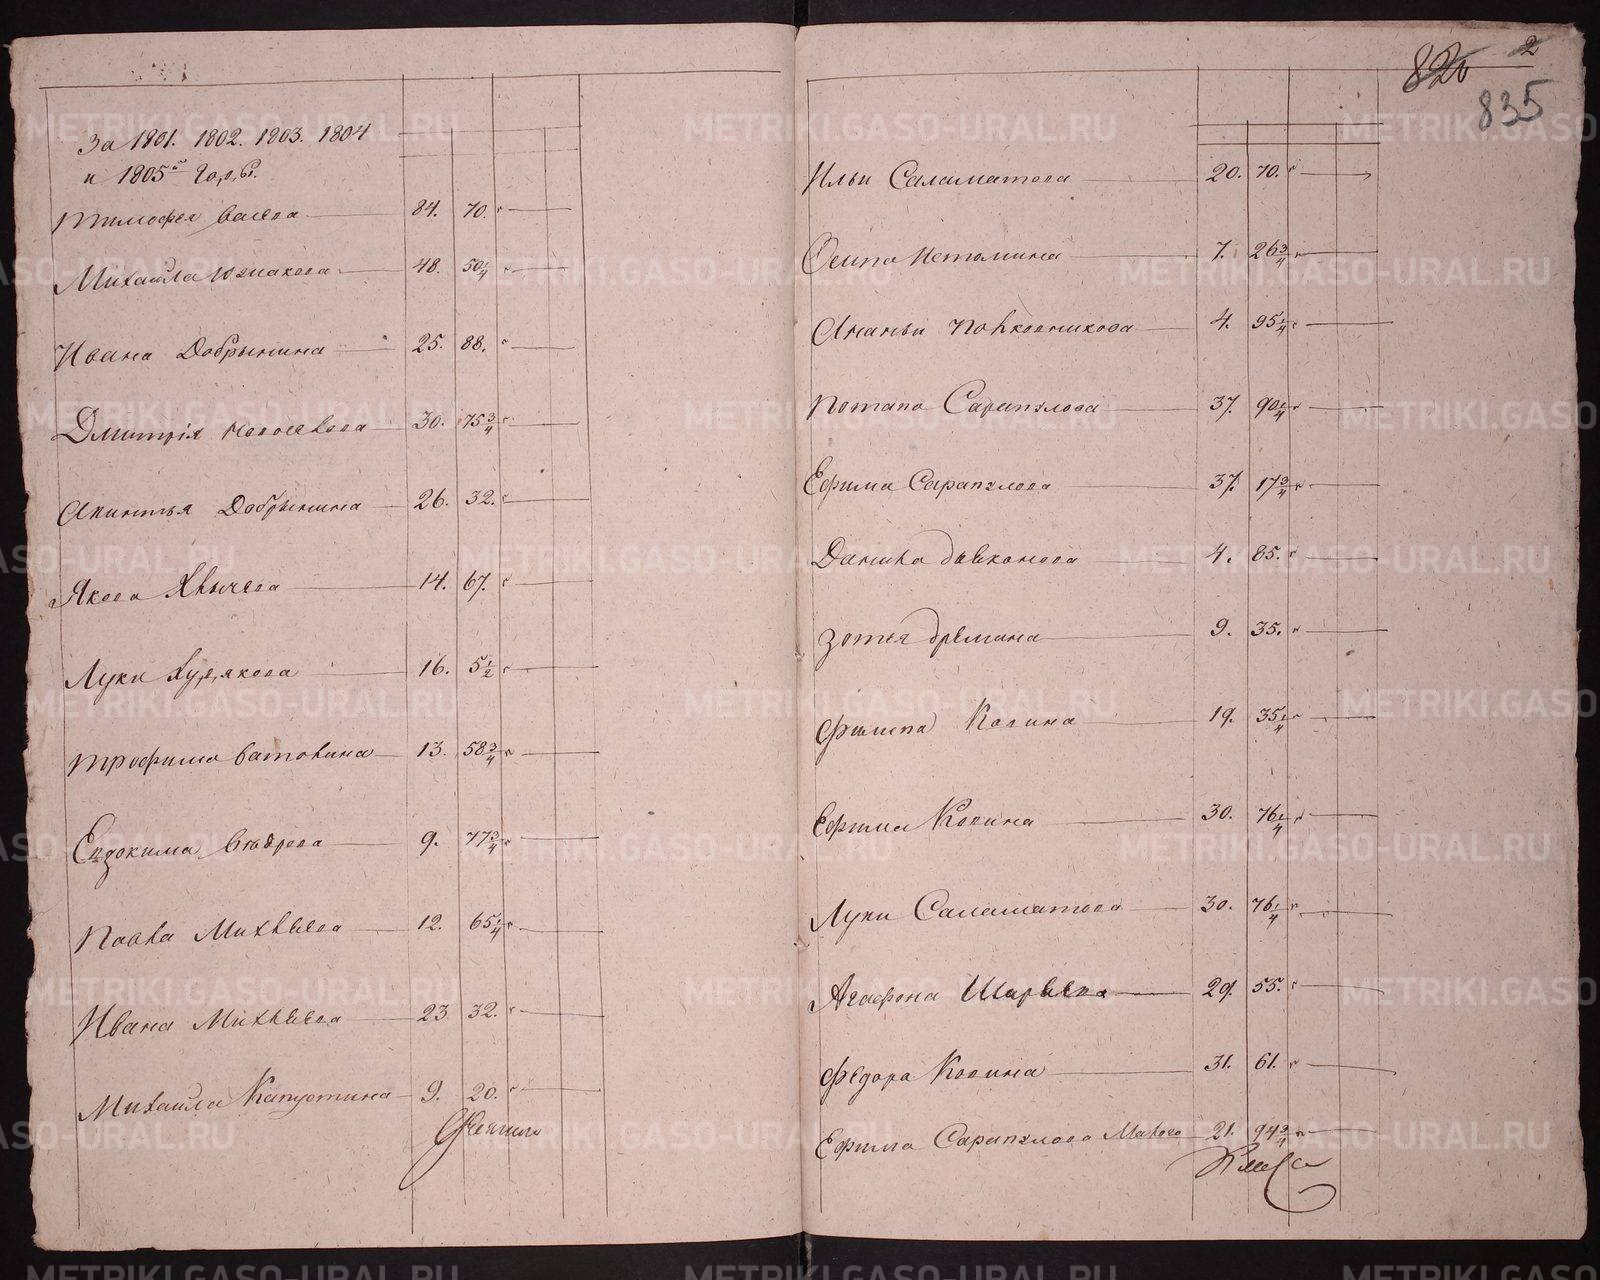 За 1801. 1802. 1803. 1804
и 1805й год,ъ.
Тимофея Валова 84. 70.
Михаила Южакова 48. 50 1/4
Ивана Добрынина 25. 88.
Дмитрiя 30. 75 3/4
Акинтья Добрынина 26. 32.
Якова Хлычева 14. 67.
Луки Худякова 16. 5 1/2
Трофима Ватолина 13. 58 3/4
Евдокима 9. 77 3/4
Павла Михѣева 12. 65 1/4
Ивана Михѣева 23 32.
Михаила Капустина 9. 20.
820 2
835
Ильи Саламатова 20. 70.
Осипа Истомина 7. 26 3/4
Ананьи Полковникова 4. 95 1/4
Потапа Сарапулова 37. 90 1/4
Ефима Сарапулова 37. 17 3/4
Данила 4. 85.
Зотея Еремина 9. 35.
Филипа Копина 19. 35 1/4
Ефима Копина 30. 76 1/4
Луки Саламатова 30. 76 1/4
Агафона 29. 55.
Федора Копина 31. 61.
Ефима Сарапулова Малого 21. 94 3/4
METRIKI.GASO-URAL.RU